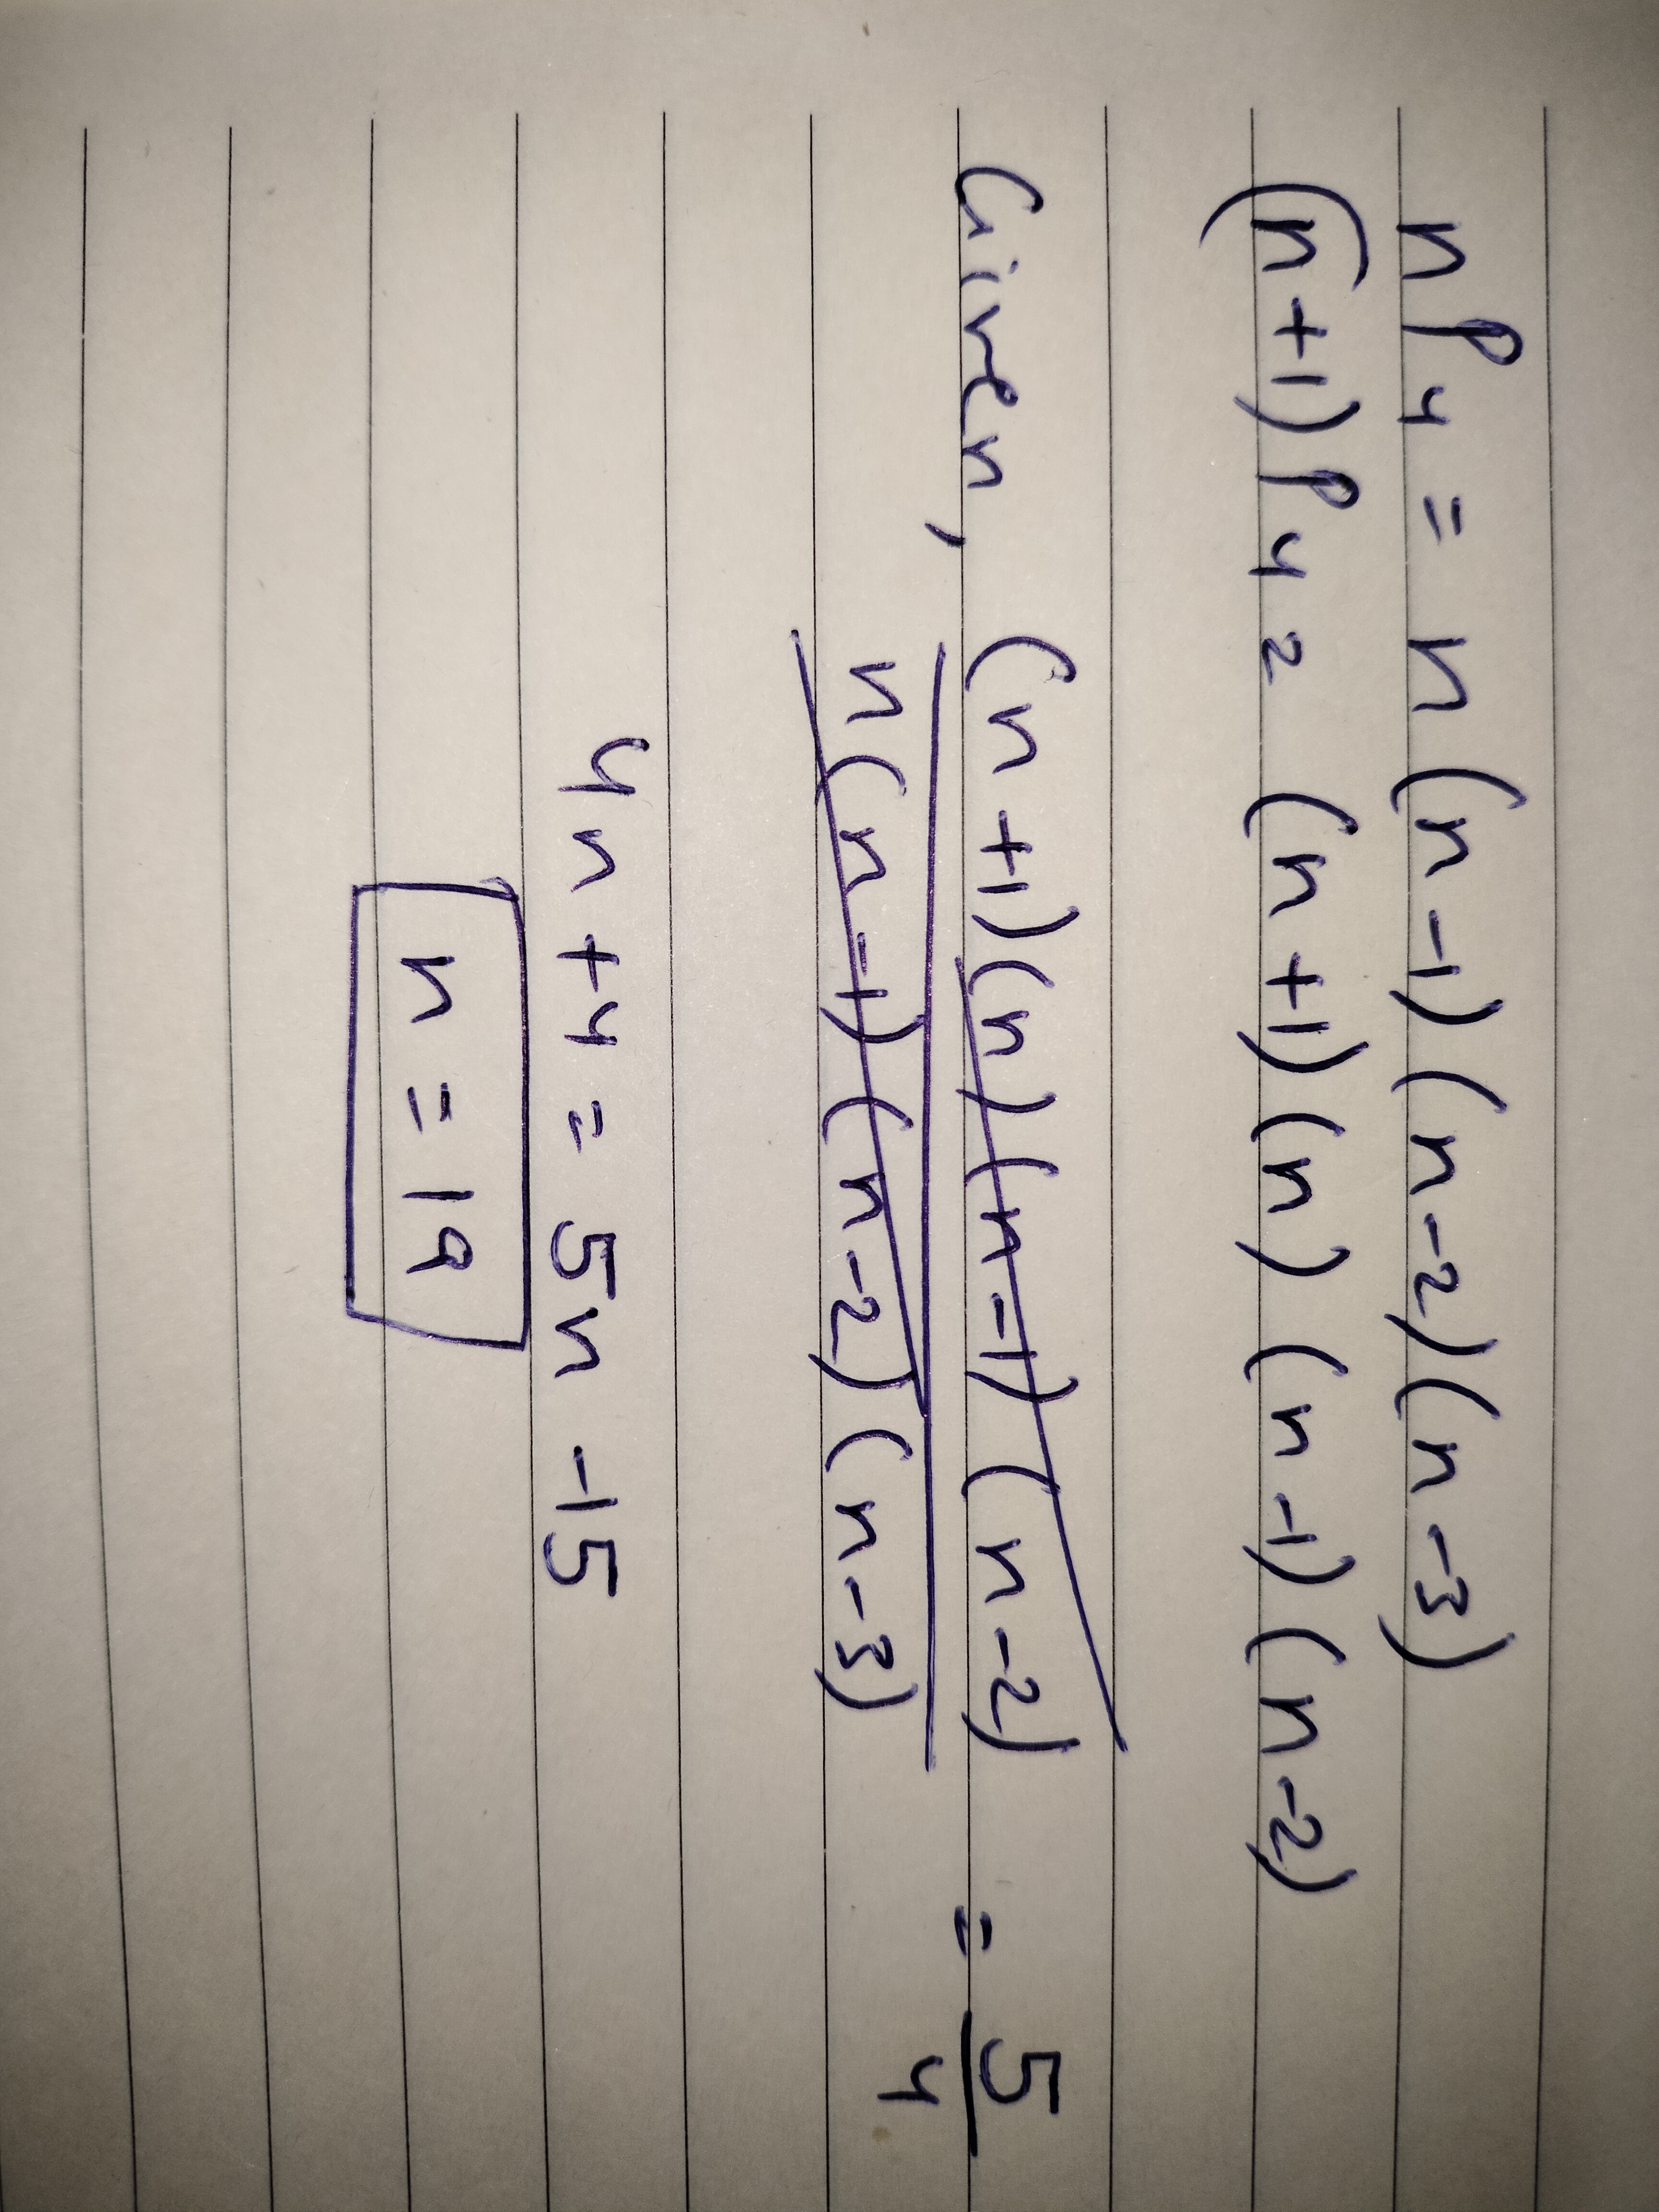 nP4 = n(n-1)(n-2)(n-3)
(n+1)P4 = (n+1)(n)(n-1)(n-2)
Given, (n+1)(n)(n-1)(n-2) = 5
n(n-1)(n-2)(n-3) 4
4n+4 = 5n-15
n = 19